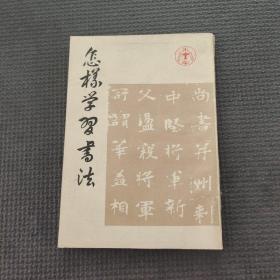 怎樣学習書法
尚書并州刺
中堅將軍新
父盪寇將軍
祖諱華并相